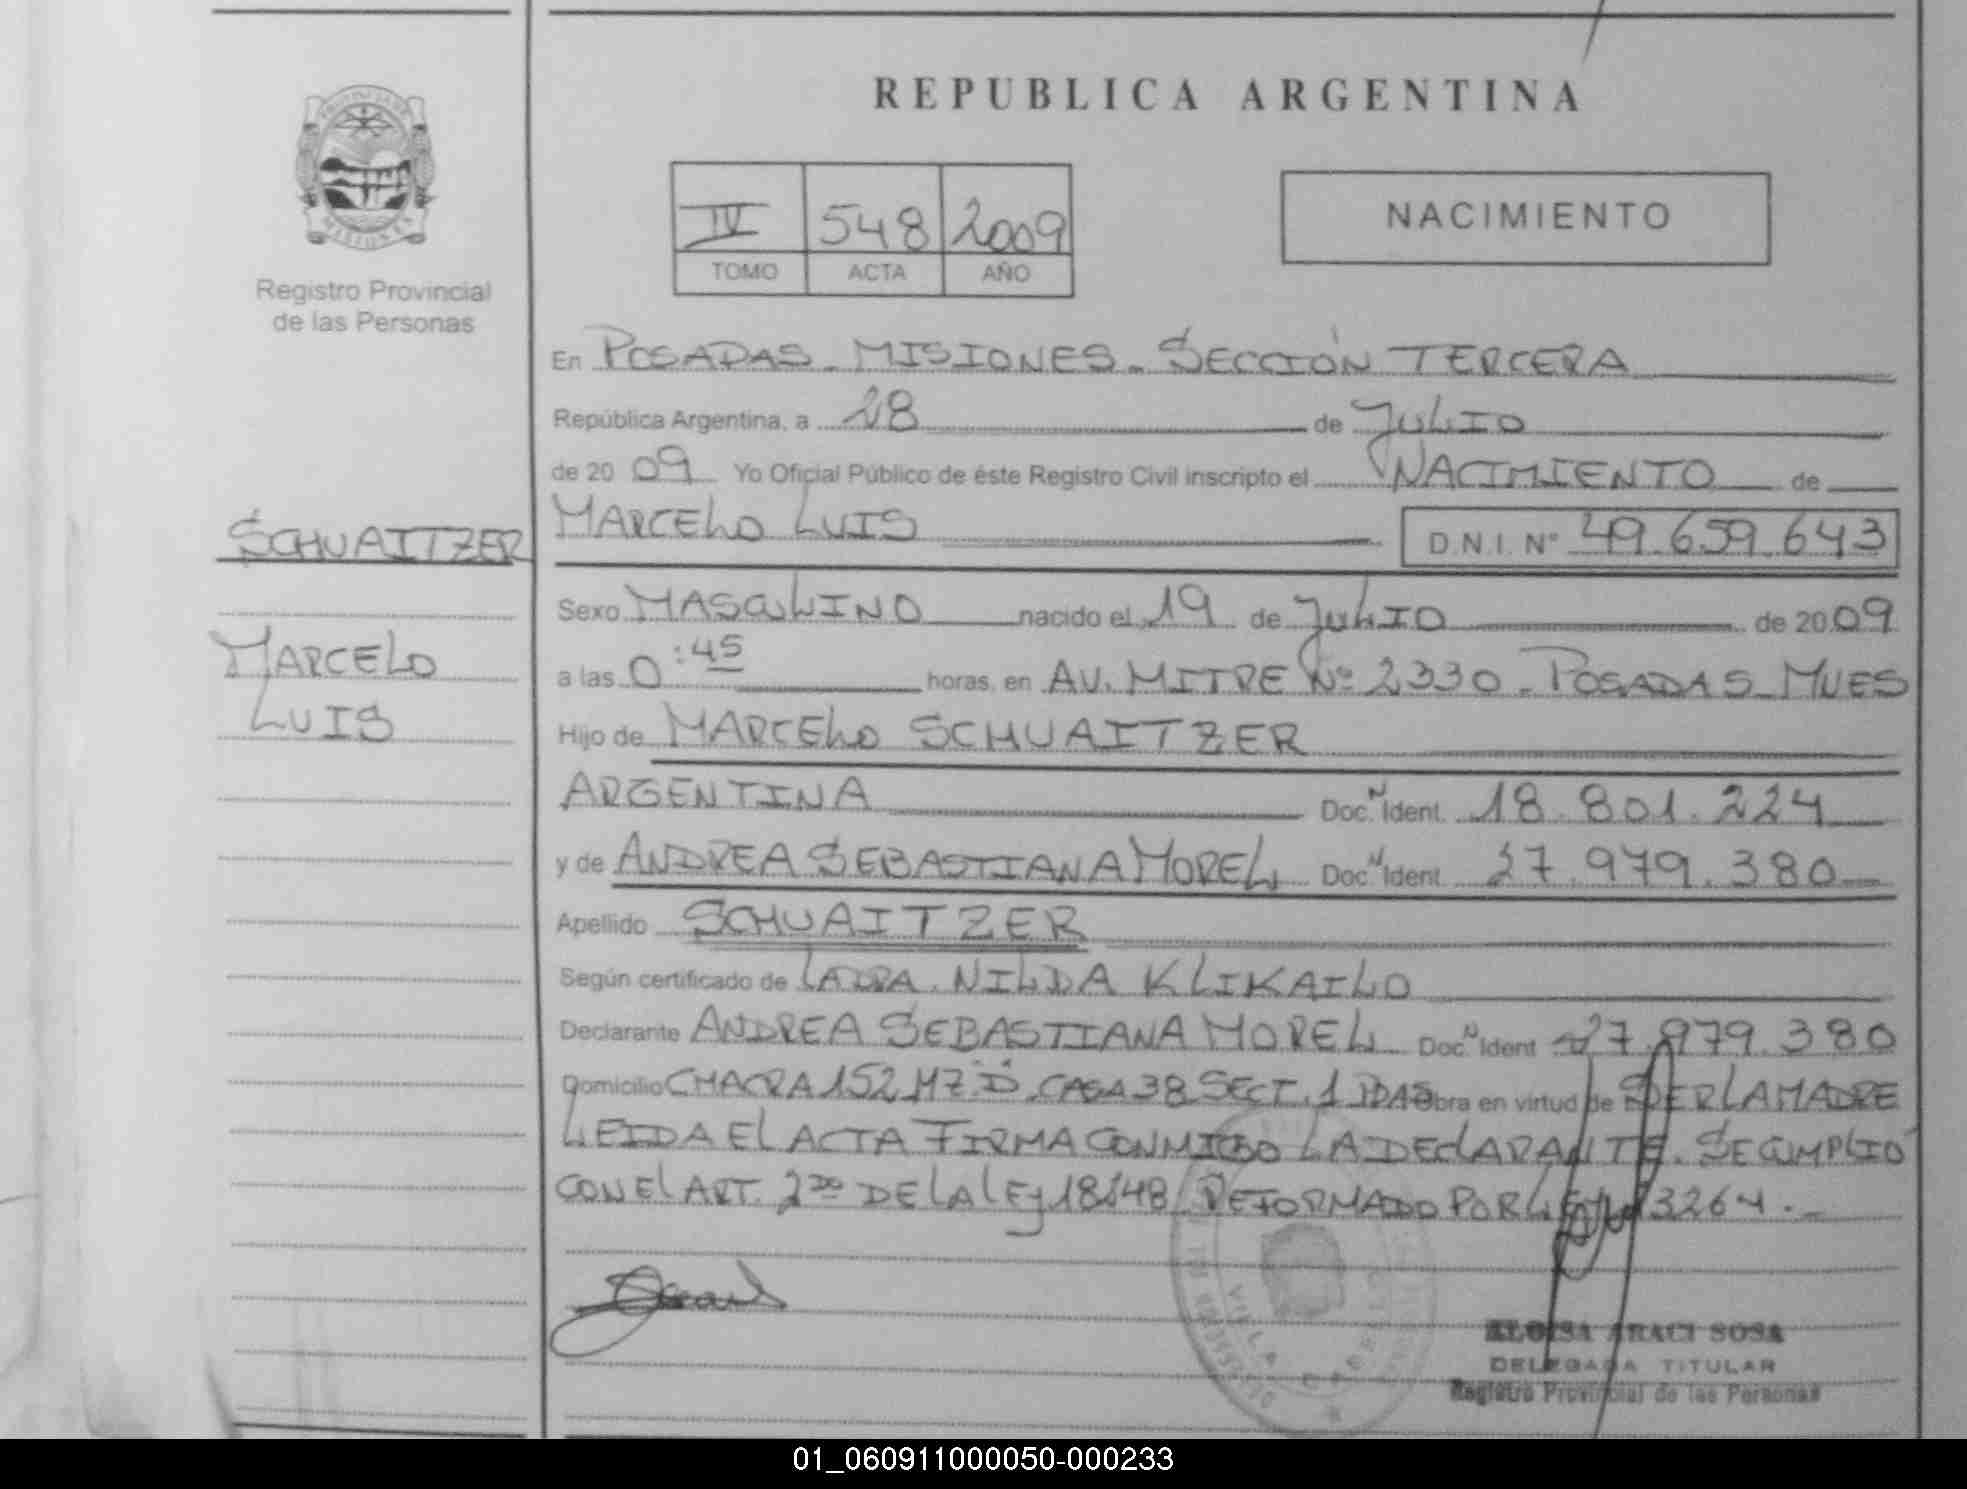 REPUBLICA ARGENTINA
IV 548 2009
TOMO ACTA AÑO
NACIMIENTO
Registro Provincial
de las Personas
SCHUAITZER
MARCELO
LUIS
En POSADAS - MISIONES - SECCIÓN TERCERA
República Argentina, a 28 de JULIO
de 2009 Yo Oficial Público de éste Registro Civil inscripto el NACIMIENTO de
MARCELO LUIS D.N.I. N° 49.659.643
Sexo MASCULINO nacido el 19 de JULIO de 2009
a las 0:45 horas, en AV. MITRE Nº 2330 - POSADAS - MNES
Hijo de MARCELO SCHUAITZER
ARGENTINA Doc. N Ident. 18.801.224
y de ANDREA SEBASTIANA MOREL Doc. N Ident. 27.979.380
Apellido SCHUAITZER
Según certificado de LA DRA. NILDA KLIKAILO
Declarante ANDREA SEBASTIANA MOREL Doc. N Ident 27.979.380
Domicilio CHACRA 152 MZ. D. CASA 38 SECT. 1 PDAS Obra en virtud de SER LA MADRE
LEIDA EL ACTA FIRMA CONMIGO LA DECLARANTE. SE CUMPLIO
CON EL ART. 2do DE LA LEY 18248 REFORMADO POR LEY 23264.-
VILLA
ELOISA ARACI SOSA
DELEGADA TITULAR
Registro Provincial de las Personas
01_060911000050-000233